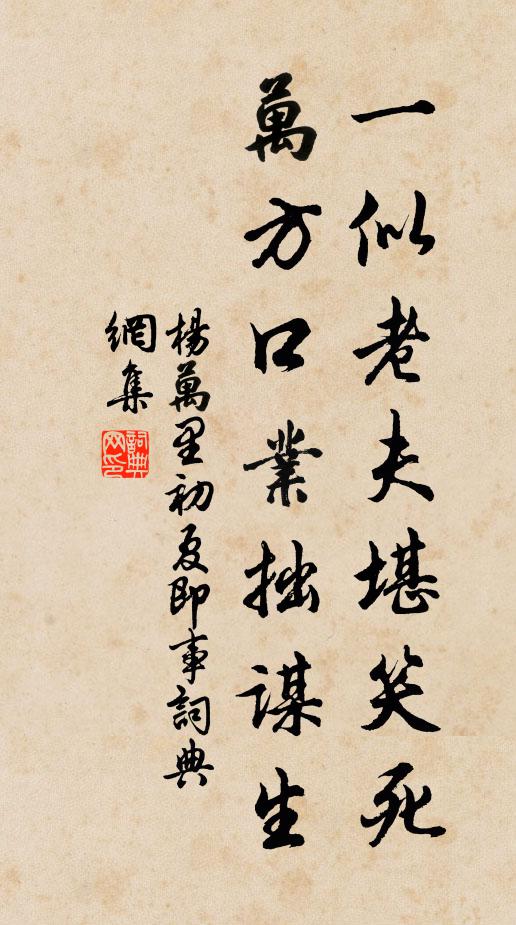 一似老夫堪笑死
萬方口業拙謀生
楊萬里初夏即事詞典
網集
詞典
网印